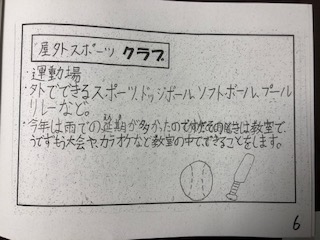 屋外スポーツ クラブ
・運動場
・外でできるスポーツ、ドッジボール、ソフトボール、プール
リレーなど。
・今年は雨での延期が多かったのですがそのときは教室で、
うでずもう大会や、カラオケなど教室の中でできることをします。
6